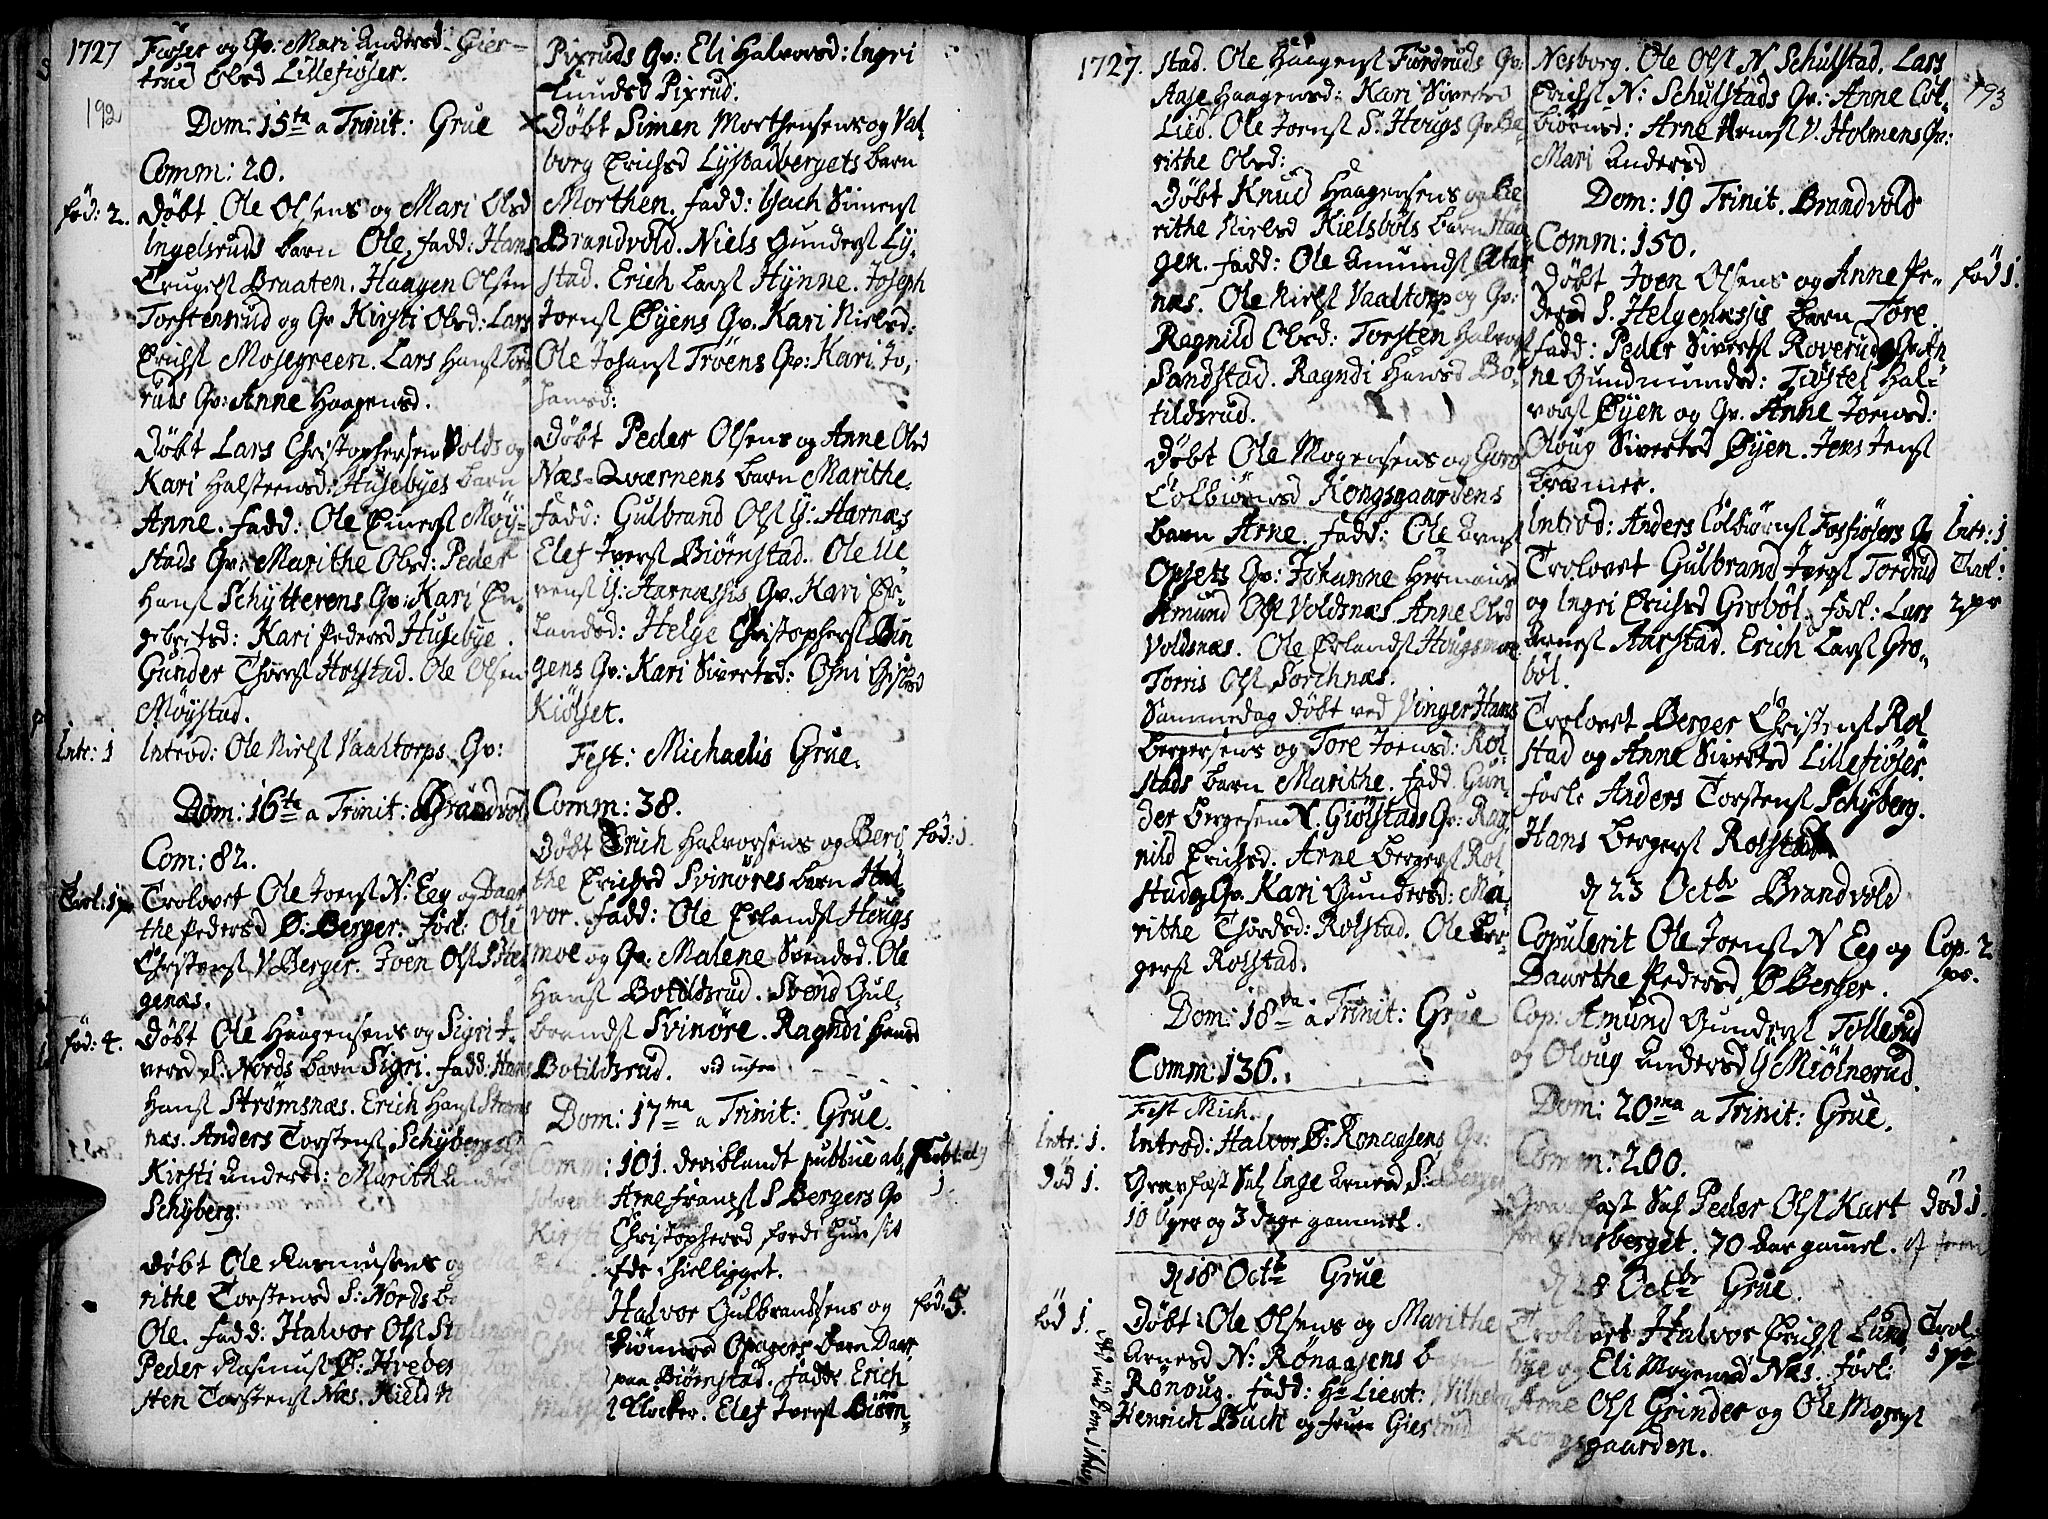 1727
192
Fiøser og Qv: Mari Andersd. Gier-
trud Olesd Lillefiøser.
Dom: 15ta a Trinit: Grue
Comm: 20.
fød: 2.
Døbt Ole Olsens og Mari Olsd
Ingelsruds barn Ole, fadd: Hans
Trugels Braaten. Haagen Olsen
Torstensrud og Qv Kirsti Olesd: Lars
Erichs Mosegreen. Lars Hans Tors
ruds Qv: Anne Haagensd.
Døbt Lars Christophersen Volds og
Kari Halsteensd: Husebyes barn
Anne. fadd: Ole Einers Møy-
stads Qv: Marithe Olesd: Peder
Hans Schytterens Qv: Kari En-
gebretsd: Kari Pedersd Husebye.
Gunder Thors Hofstad. Ole Olsen
Møystad.
Intr: 1
Introd: Ole Niels Vaaltorps Qv:
Dom: 16ta a Trinit: Brandvold
Com: 82.
Trol: 1 pr
Trolovet Ole Joens N: Eeg og Daar
the Pedersd Ø: Berger. forl: Ole
Christens V. Berger. Joen Ols S. Hel
genæs.
fød: 4.
Døbt Ole Haagensens og Sigri I-
versd S: Nords barn Sigri. fadd: Hans
Hans Strømsnæs. Erich Hans Strøms
næs. Anders Torstens Schyberg
Kirsti Andersd: Marith Anders
Schyberg:
Døbt Ole Rasmussens og
rithe Torstensd S: Nords b
Ole. fadd: Halvor Ols St
Peder Rasmus Ø: Hveber
sten Torstens Næs. Kield N
Pixruds Qv: Eli Halvorsd: Ingri
Lundsd Pixrud.
Døbt Simen Morthensens og Val
borg Erichsd Lystadbergets barn
Morthen. fadd: Isach Simens
Brandvold. Niels Gunders Ly-
stad. Erich Lars Hynne. Joseph
Joens Øyens Qv. Kari Nielsd:
Ole Johans Trøens Qv: Kari Jo-
hansd:
Døbt Peder Olsens og Anne Olesd
Næs-Qværnens barn Marithe.
fadd: Gulbrand Ols Y: Harnæs
Elef Ivers Biørnstad. Ole
vens Y: Harnæssis Qv. Kari Er-
landsd: Helge Christophers Bun
gens Qv: Kari Sivertsd: Ohni Gislesd
Kiølset.
Fest: Michaelis Grue.
Comm: 38.
fød: 1.
Døbt Erich Halvorsens og Beri
the Erichsd Svinøres barn Hal-
vor. fadd: Ole Erlands Hougs
moe og Qv: Malene Svendsd. Ole
Hans Botildsrud. Svend Gul-
brands Svinøre. Ragndi Hansd
Botildsrud. vid infra
Dom: 17ma a Trinit: Grue.
Comm: 101. deriblandt publice ab
Publ: ab: 1
Arne Frans S Bergers Qv
Kirsti Christophersd fordi hun sit
ihielligget.
fød: 5.
Døbt Halvor Gulbrandsens og
Biønnes Opagers barn Daar
paa Biørnstad. fadd: Erich
Klocker. Elef Ivers Biørn-
1727.
193
stad. Ole Haagens Furdruds Qv:
Aase Haagensd: Kari Sivertsd
Lied. Ole Joens S. Hougs Qv. Be
rithe Olesd:
Døbt Knud Haagensens og Be
rithe Nielsd Kielsbøls barn Haa
gen. fadd: Ole Amunds Øtar
næs. Ole Niels Vaaltorp og Qv:
Ragnild Olesd: Torsten Halvors
Sandstad. Ragndi Hansd Bo-
tildsrud.
Døbt Ole Mogensens og Guro
Colbiørnsd Kongsgaardens
barn Arne. fadd: Ole Arnes
Opsets Qv: Johanne Hermansd
Amund Ols Voldsnæs. Anne Olesd
Voldsnæs. Ole Erlands Hougsmoe
Torris Ols Sorchnæs.
Sammedag døbt ved Vinger Hans
Bergersens og Tore Joensd: Rol-
stads barn Marithe. fadd Gun-
der Bergesen N. Giølstads Qv: Rag-
nild Erichsd. Arne Bergers Rol
stads Qv. Kari Gundersd: Ma-
rithe Thordsd: Rolstad. Ole Ber-
gers Rolstad.
Dom: 18va a Trinit: Grue
Comm: 136.
Fest Mich.
Intr: 1.
Introd: Halvor Ø: Ronaasens Qv:
Død 1.
Gravfast Sal Inge Arnesd S: Berger
10 Uger og 3 dage gammel.
d 18 Octb Grue
fød 1.
Døbt: Ole Olsens og Marithe
Arnesd N: Rønaasens barn
Rønoug. fadd: Hr Lieut: Vilhelm
Henrich Buch og frue Giestrud
Nesborg. Ole Ols N Schulstad. Lars
Erichs N: Schulstads Qv: Anne Col-
biørnsd: Arne Arnes V. Holmens Qv:
Mari Andersd
Dom: 19 Trinit. Brandvold
Comm: 150.
fød 1.
Døbt Joen Olsens og Anne Pe-
dersd S. Helgenæssis barn Tore.
fadd: Peder Siverts Roverud Qv: An
ne Gundmundsd: Tiøstel Hal-
vors Øyen og Qv. Anne Joensd:
Oloug Sivertsd Øyen. Jens Jens
Kræmer.
Intr: 1.
Introd: Anders Colbiørns Fosfiøsers Qv
Trol: 2 pr
Trolovet Gulbrand Joens Tordrud
og Ingri Erichsd Grobøl. forl: Lars
Arnes Aarstad. Erich Lars Gro-
bøl.
Trolovet Berger Christens Rol
stad og Anne Sivertsd Lillefiøser.
forl: Anders Torstens Schyberg.
Hans Bergers Rolstad
d 23 Octbr Brandvold
Cop. 2 pr.
Copulerit Ole Joens N Eeg og
Daarthe Pedersd Ø Berger.
Cop: Amund Gunders Tollerud
og Oloug Andersd Y Miølnerud.
Dom: 20ma a Trinit: Grue.
Comm: 200.
Død 1.
Gravfast Sal Peder Ols Kart
berget. 70 aar gamel.
d 28 Octbr Grue.
Trol: 1 pr
Trolovet Halvor Erichs Lund
bye og Eli Mogensd Næs. forl:
Arne Ols Grinder og Ole Mogens
Kongsgaarden.